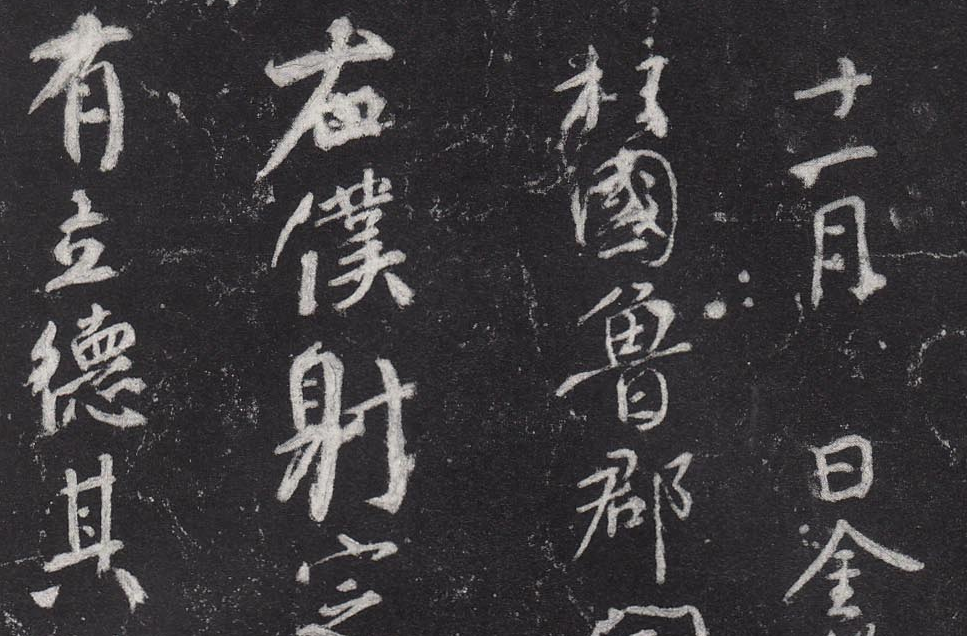 十一月日金
柱國魯郡開
右僕射定
有立德其